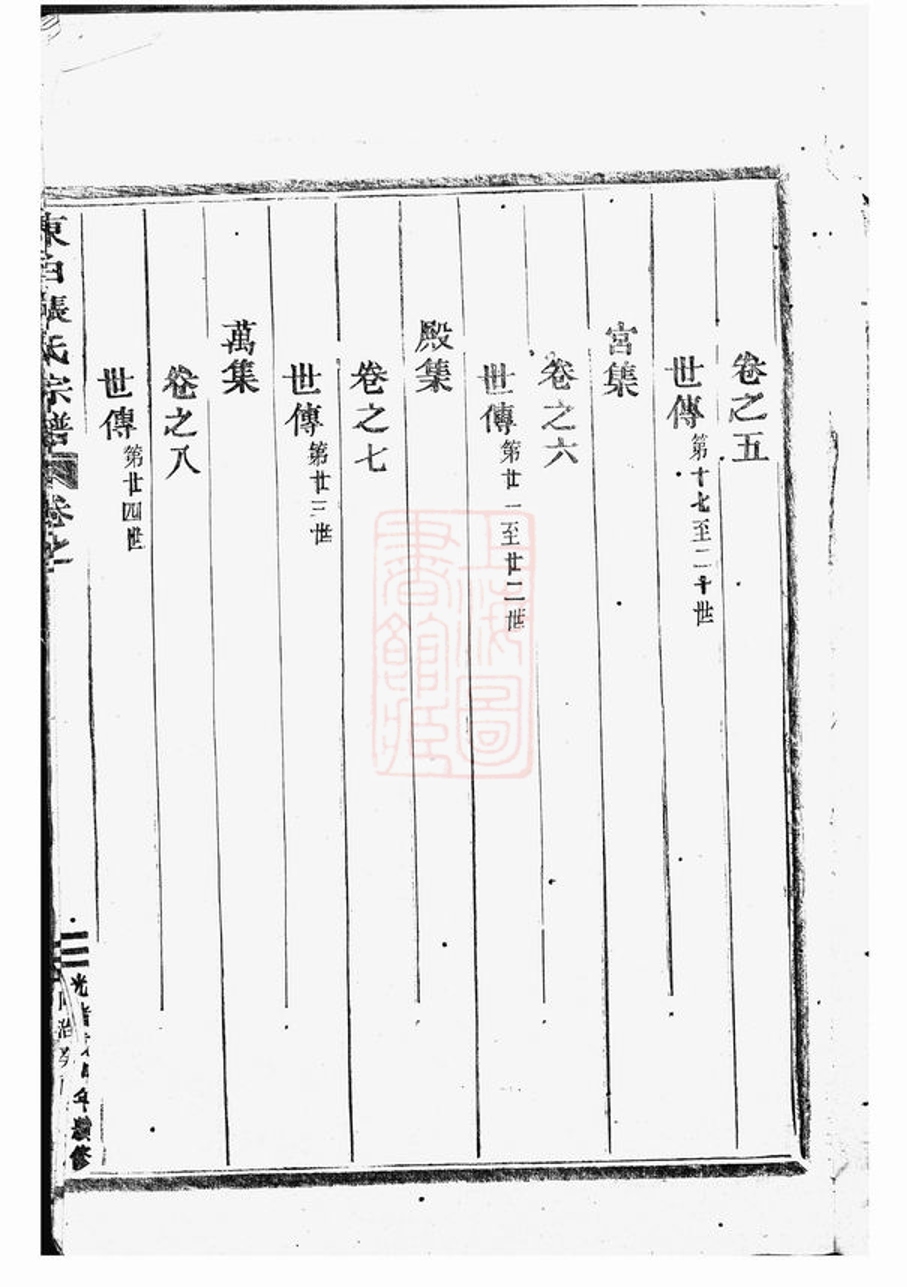 卷之五
世傳第十七至二十世
宮集
卷之六
世傳第廿一至廿二世
殿集
卷之七
世傳第廿三世
萬集
卷之八
世傳第廿四世
東白張氏宗譜 卷之
光緒 年續修
上海圖書館藏